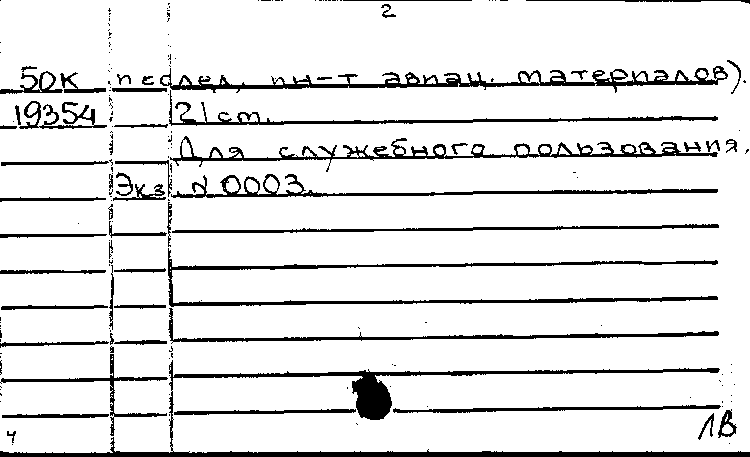 2
50К послед. ин-т авиац. материалов).
19354 21 ст.
Для служебного пользования.
Экз. № 0003.
4
ЛВ